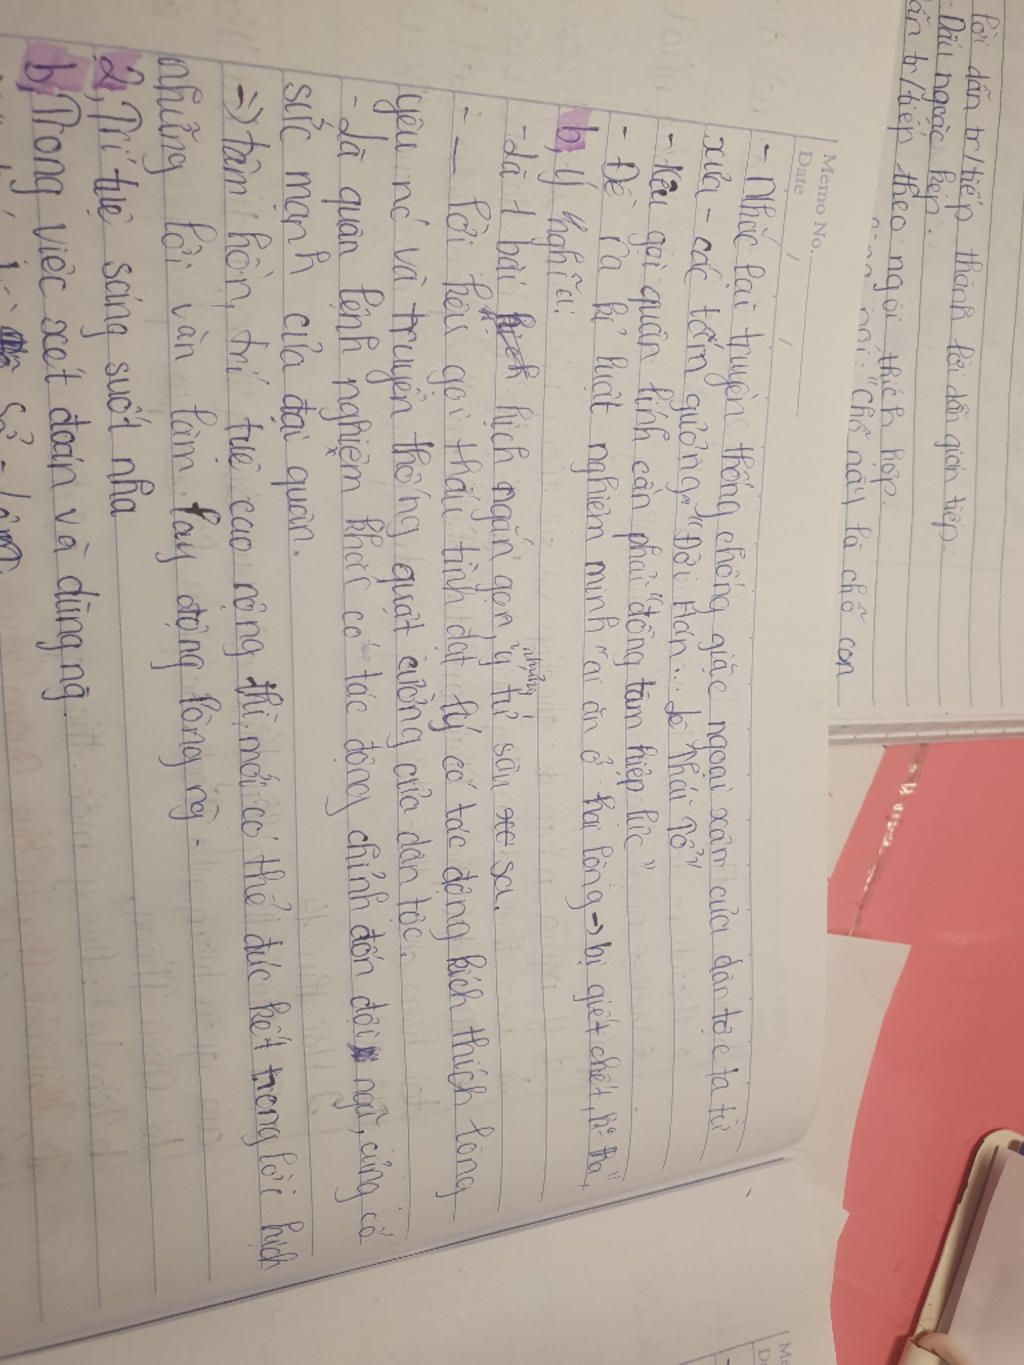 lời dẫn tr/tiếp thành lời dẫn gián tiếp.
- Dấu ngoặc kép.
dẫn tr/tiếp theo ngôi thích hợp.
nói: "chỗ này là chỗ con
Memo No.
Date / /
- Nhắc lại truyền thống chống giặc ngoại xâm của dân tộc ta từ
xưa - các tấm gương "Đời Hán... bỏ"
- Kêu gọi quân lính cần phải "đồng tâm hiệp lực"
- Đề ra kỉ luật nghiêm minh "ai ăn ở hai lòng -> bị giết chết, k° tha"
b, Ý nghĩa:
- Là 1 bài hịch ngắn gọn, nhưng ý tứ sâu xa.
- — lời kêu gọi thấu tình đạt lý có tác động kích thích lòng
yêu nc và truyền thống quật cường của dân tộc.
- Là quân lệnh nghiêm khắc có tác động chỉnh đốn đội ngũ, củng cố
sức mạnh của đại quân.
=> tâm hồn, trí tuệ cao rộng thì mới có thể đúc kết trong lời hịch
những lời văn làm lay động lòng ng.
2, Trí tuệ sáng suốt nha
b, Trong việc xét đoán và dùng ng